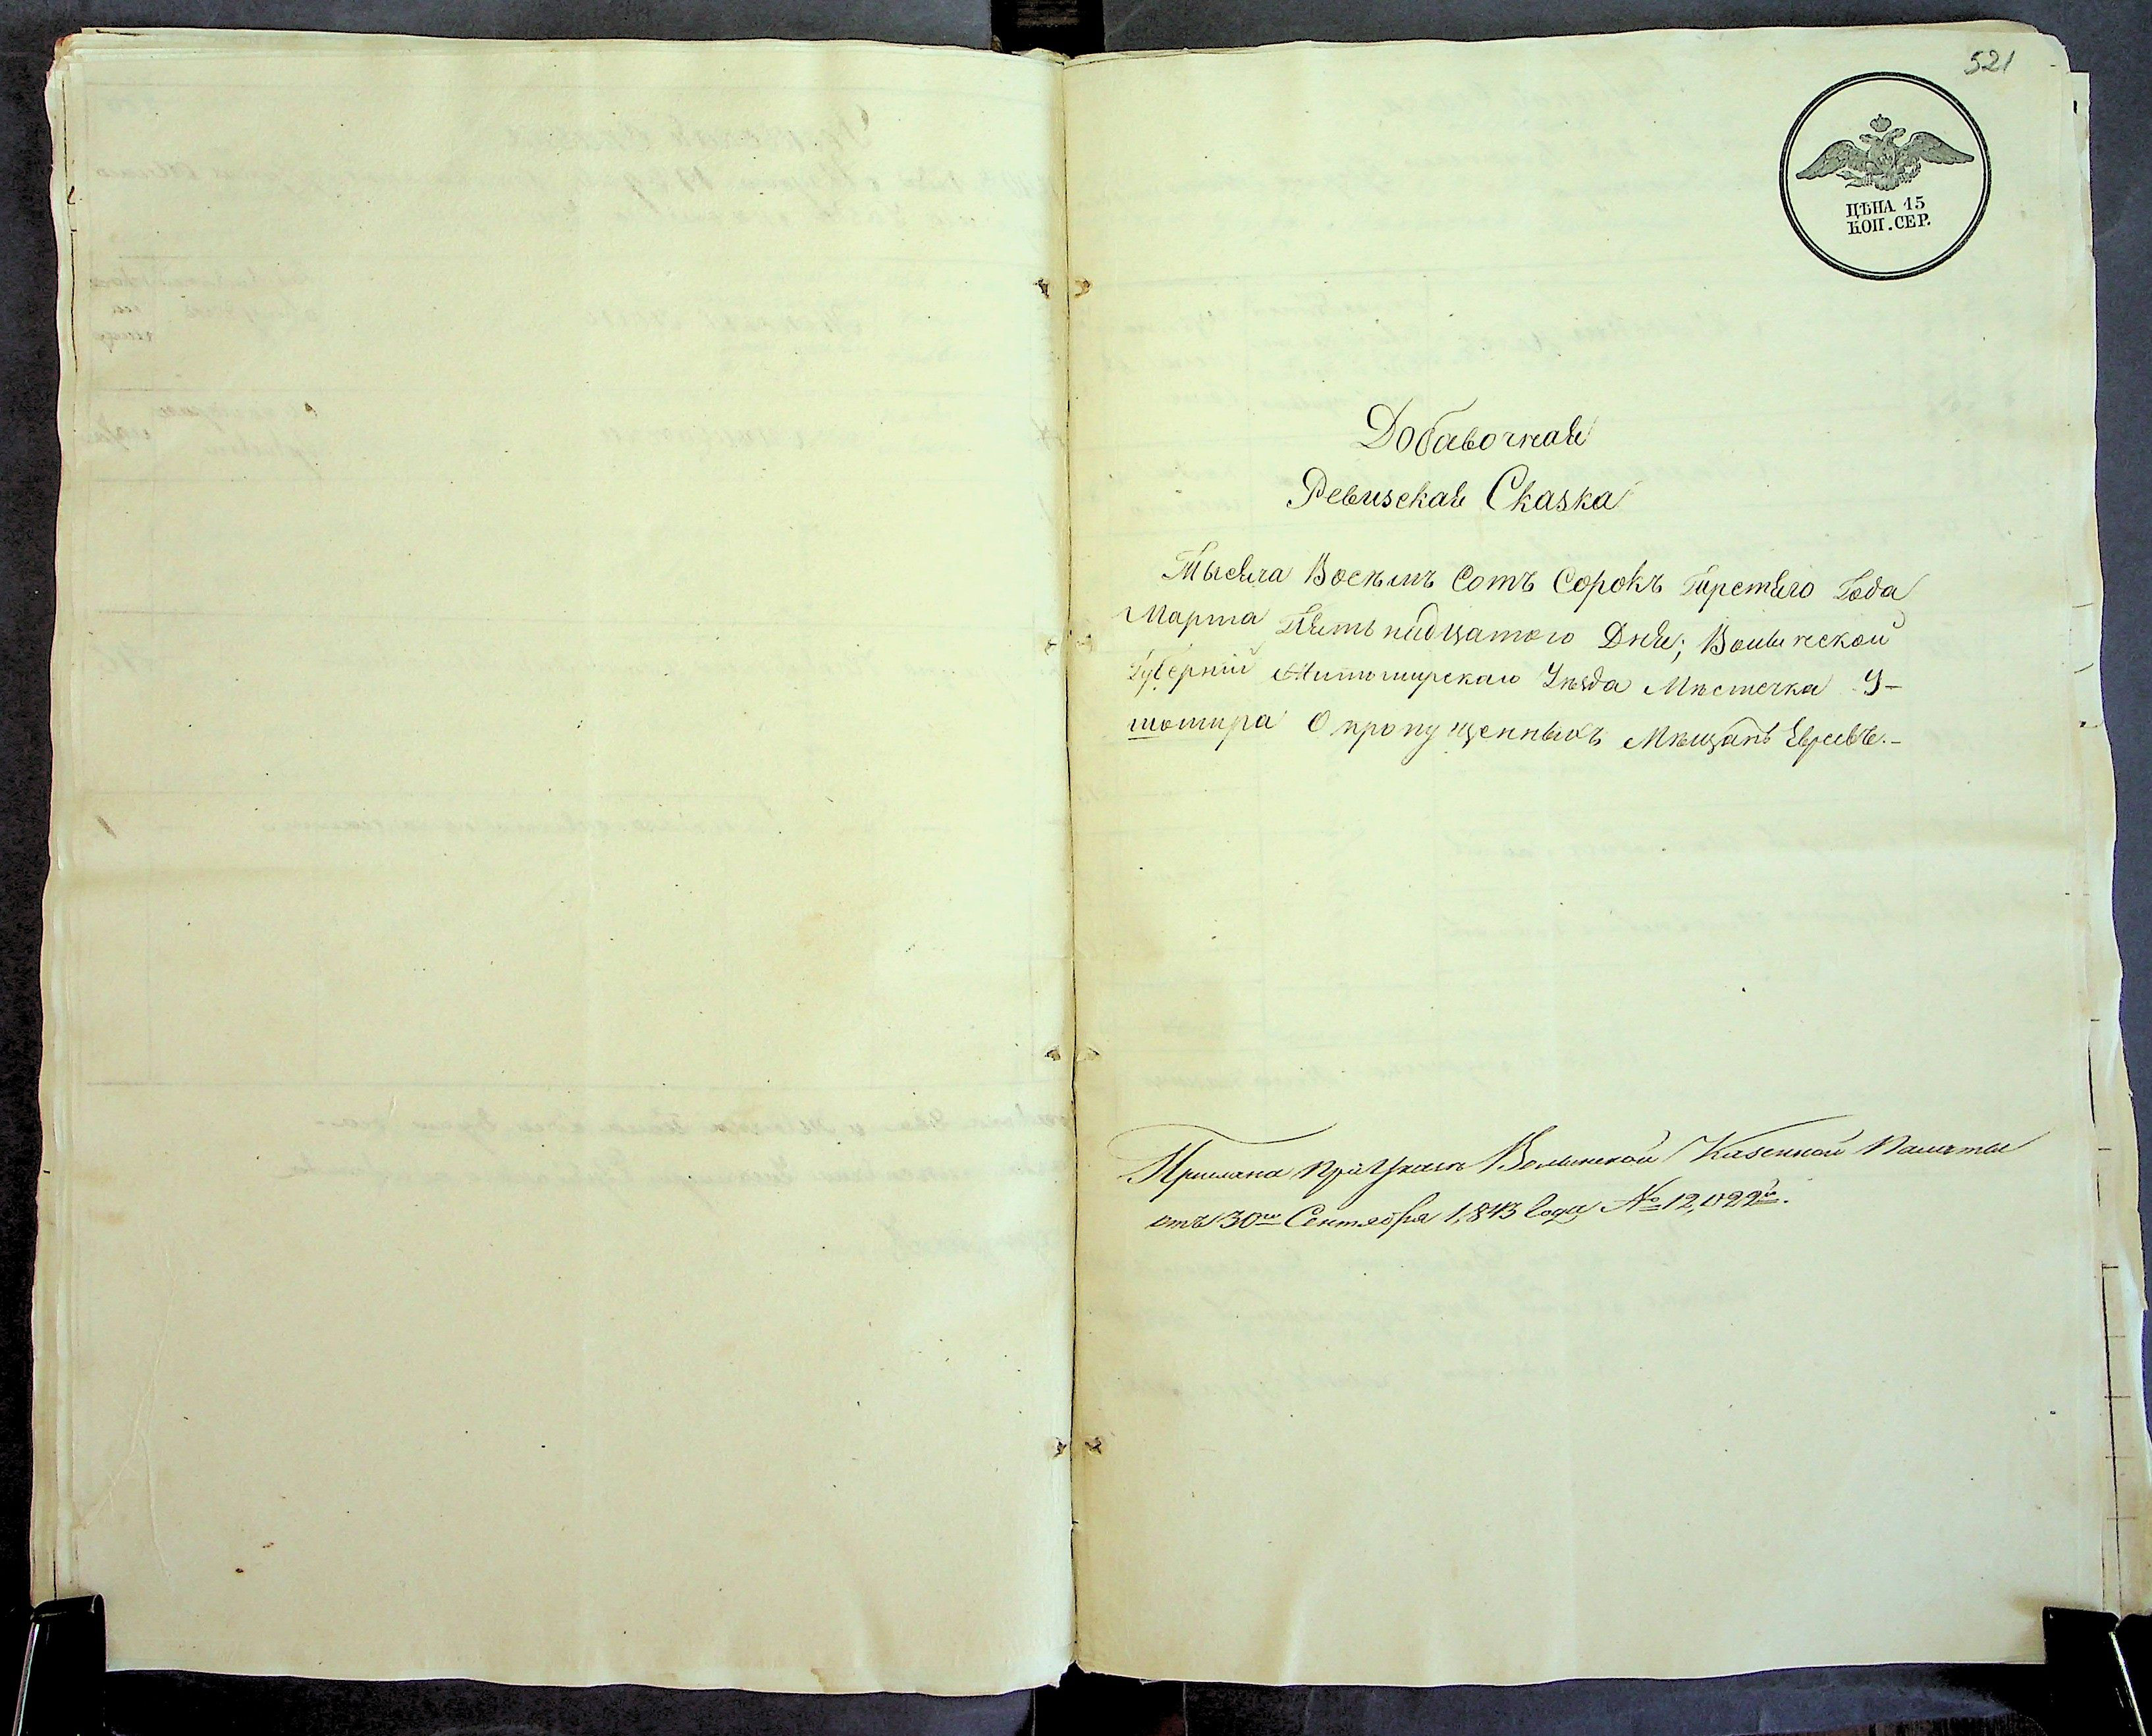 521
ЦѢНА 15
КОП. СЕР.
Добавочная
Ревизская Сказка
Тысяча Восемь Сотъ Сорокъ Третяго Года
Марта Пятьнадцатого Дня; Волынской
Губерніи Житомирскаго Уезда Мѣстечка У-
шомира О пропущенныхъ Мѣщанъ Евреевъ.-
Прислана при Указѣ Волынской Казенной Палаты
отъ 30го Сентября 1,843 года № 12,022го.